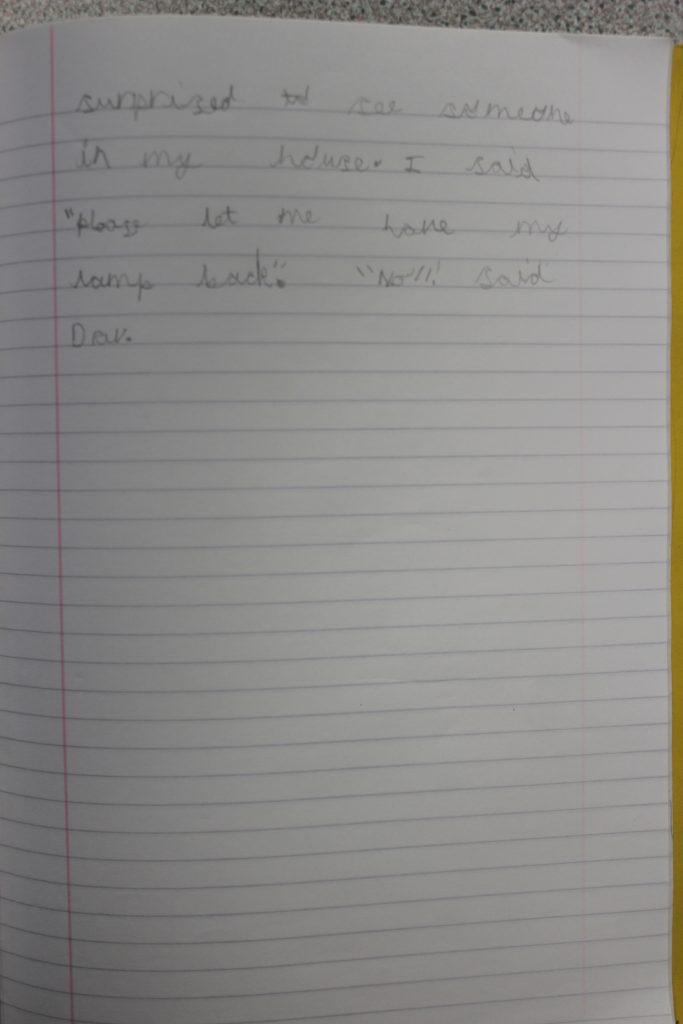 surprized to see someone
in my house. I said
"please let me have my
lamp back". "No!!! said
Dav.